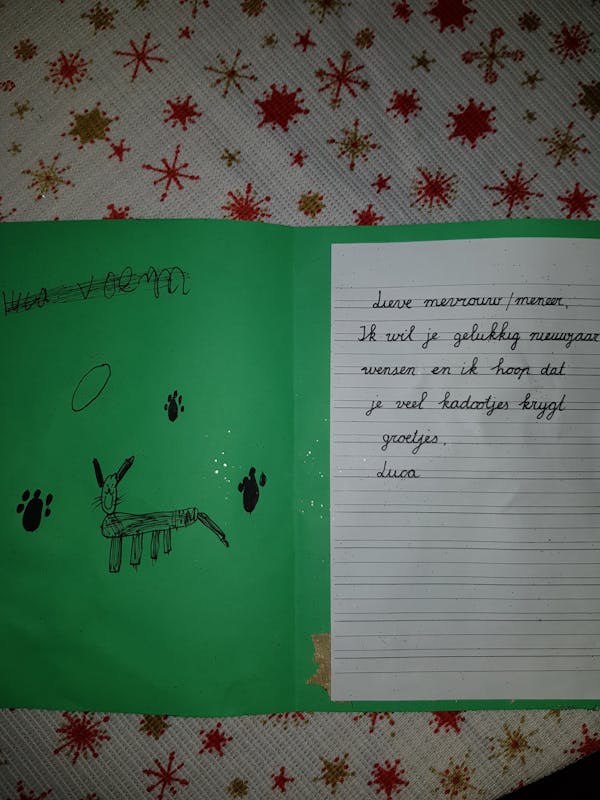 Lieve mevrouw/meneer,
Ik wil je gelukkig nieuwjaar
wensen en ik hoop dat
je veel kadootjes krygt
groetjes,
Luca